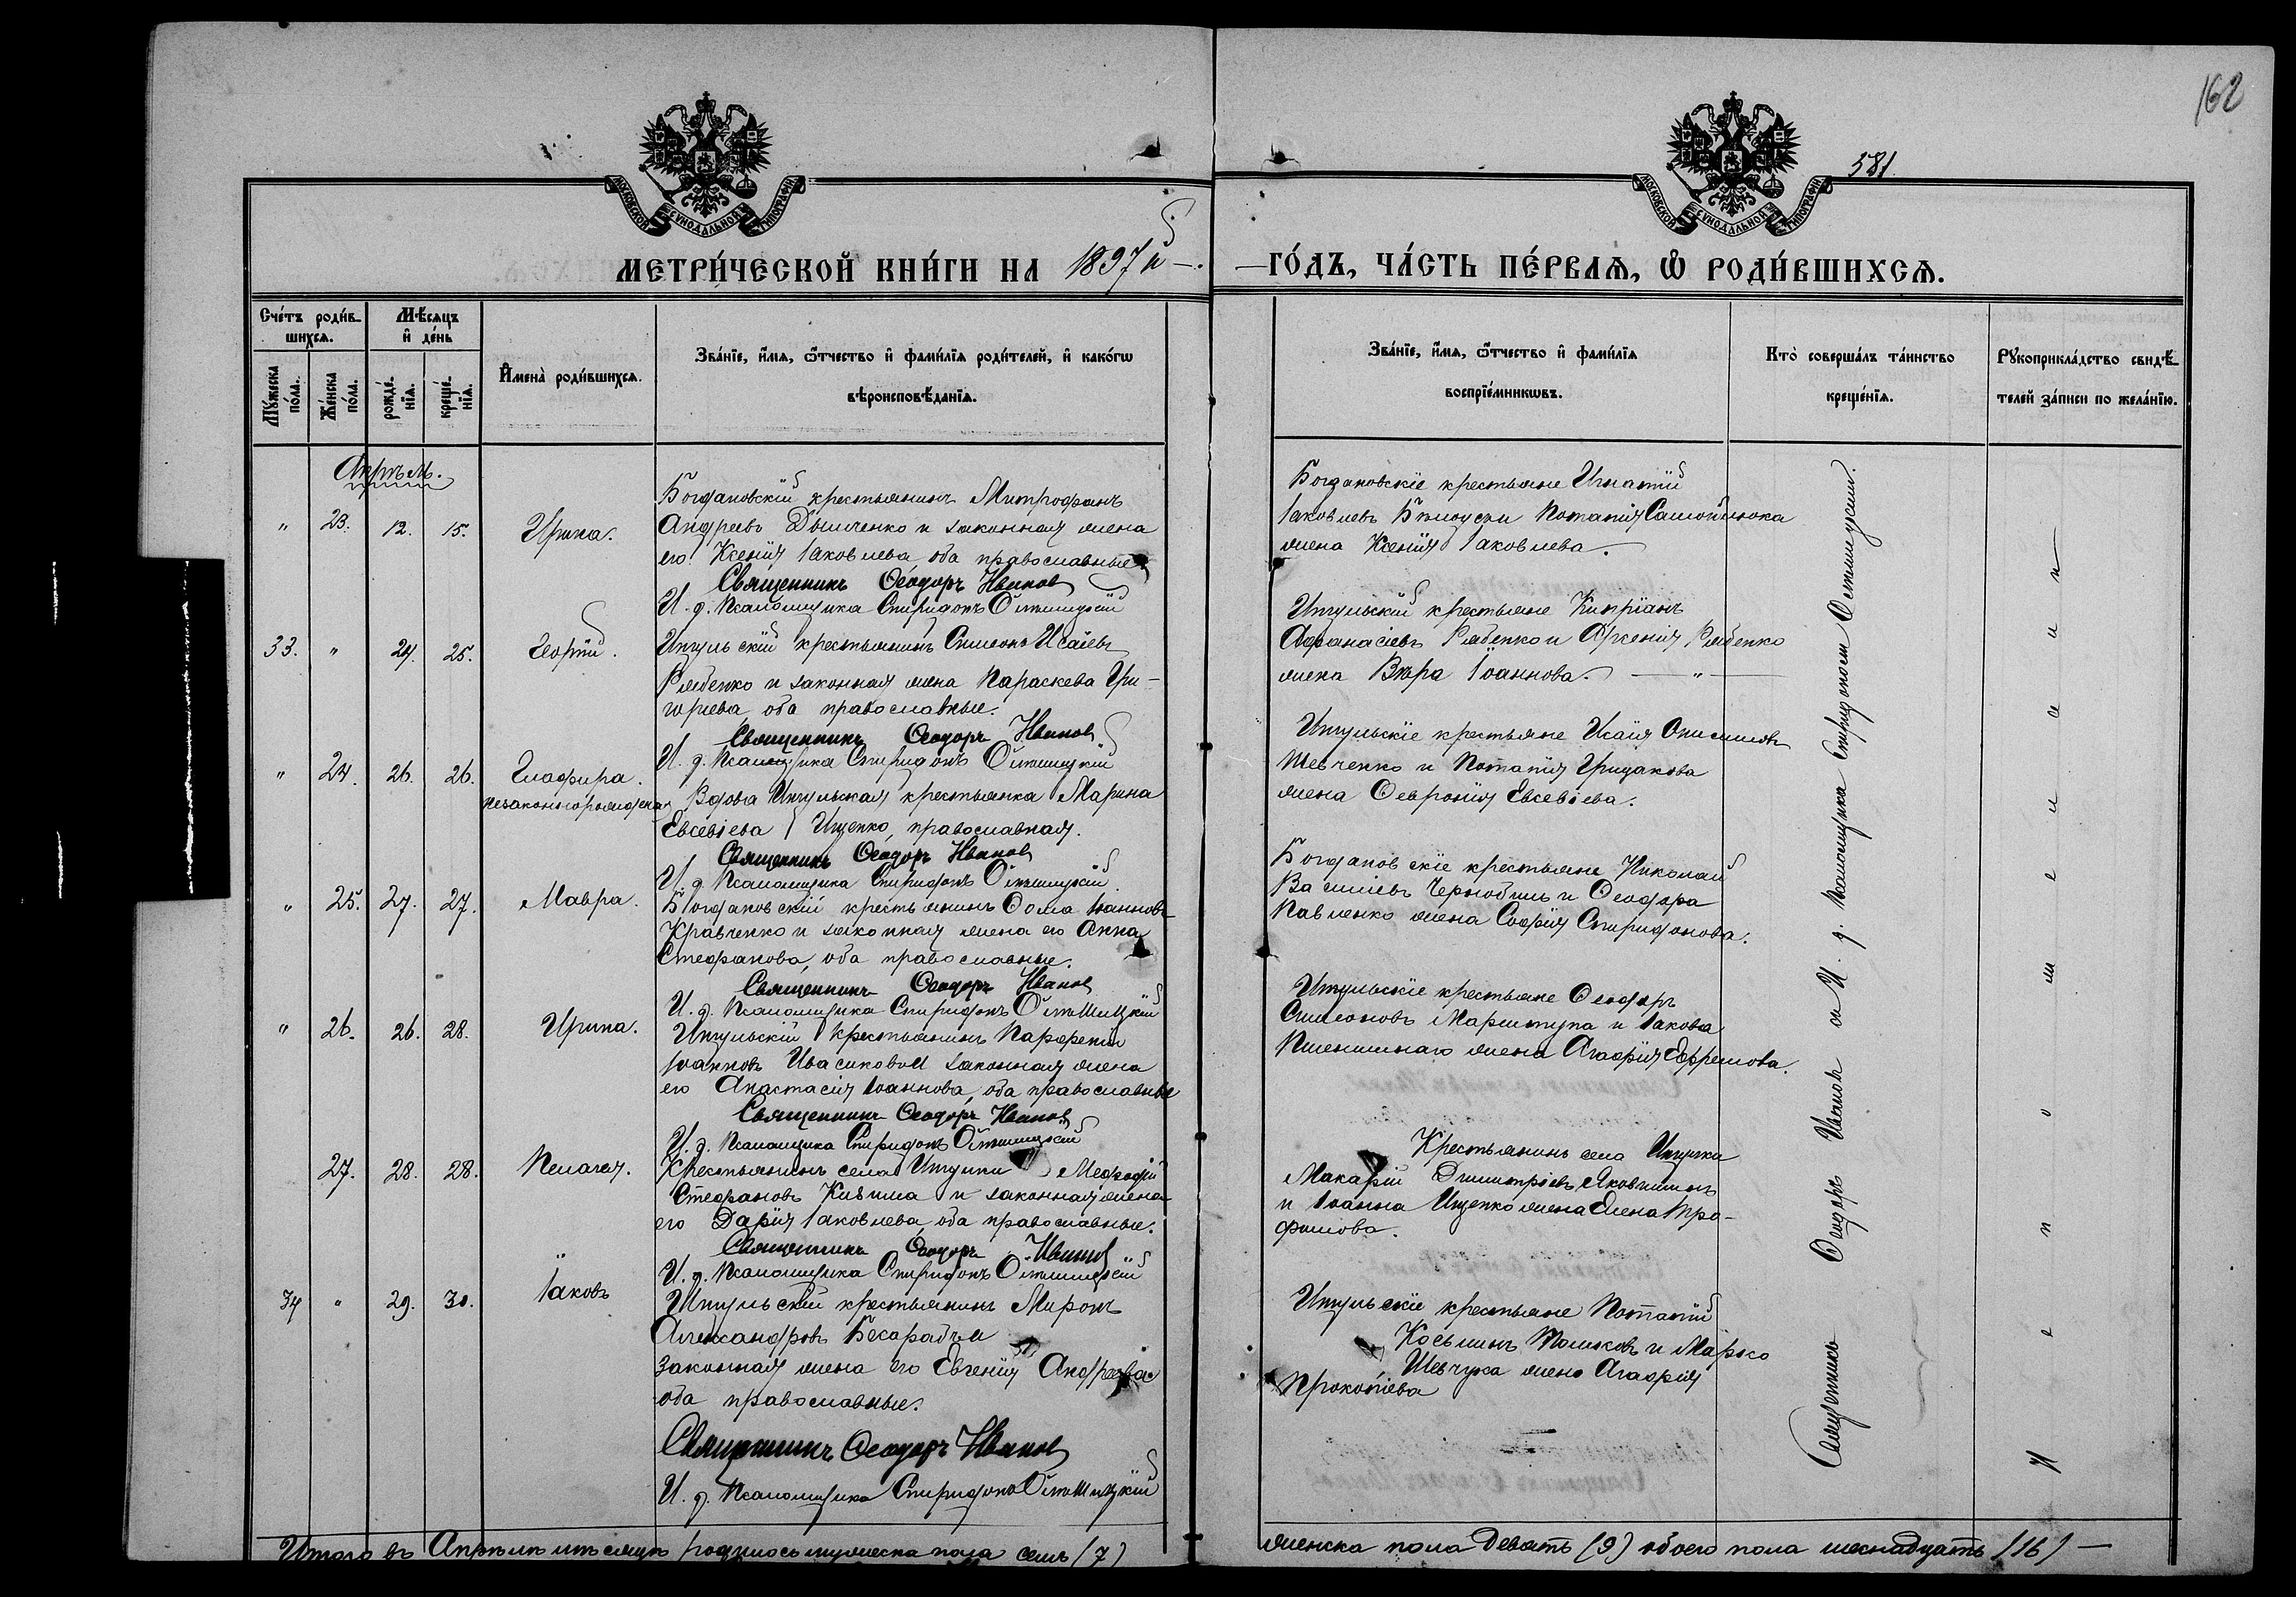 162
581.
МОСКОВСКОЙ СѴНОДАЛЬНОЙ ТИПОГРАФІИ
МОСКОВСКОЙ СѴНОДАЛЬНОЙ ТИПОГРАФІИ
МЕТРИ́ЧЕСКОЙ КНИ́ГИ НА 1897й
ГО́ДЪ, ЧА́СТЬ ПЕ́РВАЯ, Ѡ РОДИ́ВШИХСЯ.
Сче́тъ роди́в-
шихся.
Мꙋ́жеска по́ла.
Же́нска по́ла.
Мѣ́сяцъ
и де́нь
рожде́-
нія.
креще́-
нія.
Имена̀ роди́вшихся.
Зва́ніе, и́мя, ѻ́тчество и фами́лія роди́телей, и како́гѡ
вѣроисповѣ́данія.
Зва́ніе, и́мя, ѻ́тчество и фами́лія
воспріе́мникѡвъ.
Кто̀ соверша́лъ та́инство
креще́нія.
Рꙋкоприкла́дство свидѣ́-
телей за́писи по жела́нію.
Апрѣль.
" 23. 12. 15. Ирина.
Богдановскій крестьянинъ Митрофанъ
Андреевъ Дымченко и законная жена
его Ксенія Іаковлева, оба православные
Священникъ Ѳеодоръ Ивановъ
И. д. Псаломщика Спиридонъ
Богдановскіе крестьяне Игнатій
Іаковлевъ и Потапія
жена Ксенія Іаковлева.
33. " 24. 25. Георгій.
Ингульскій крестьянинъ Симеонъ Исаіевъ
Рябенко и законная жена Параскева Гри-
горіева, оба православные.
Священникъ Ѳеодоръ Ивановъ
И. д. Псаломщика Спиридонъ
Ингульскій крестьяне Кипріанъ
Аѳанасіевъ Рябенко и Арсенія Рябенко
жена Вѣра Іоаннова. — " —
" 24. 26. 26. Глафира.
незаконнорожденная
Вдова Ингульская крестьянка Марина
Евсевіева Ищенко, православная.
Священникъ Ѳеодоръ Ивановъ
И. д. Псаломщика Спиридонъ
Ингульскіе крестьяне Исаія Онисимовъ
Шевченко и Потапія Грицакова
жена Февронія Евсевіева.
" 25. 27. 27. Мавра.
Богдановскій крестьянинъ Ѳома Іоанновъ
Кравченко и законная жена его Анна
Стефанова, оба православные.
Священникъ Ѳеодоръ Ивановъ
И. д. Псаломщика Спиридонъ
Богдановскіе крестьяне Николай
Василіевъ Чернобиль и Ѳеодора
Павленко жена Софія Спиридонова.
" 26. 26. 28. Ирина.
Ингульскій крестьянинъ Парфеній
Іоанновъ Ивасиковъ и законная жена
его Анастасія Іоаннова, оба православные
Священникъ Ѳеодоръ Ивановъ
И. д. Псаломщика Спиридонъ
Ингульскіе крестьяне Ѳеодоръ
Симеоновъ и Іакова
Пшеничнаго жена Агафія Ефремова.
27. 28. 28. Пелагея.
Крестьянинъ села Ингулки Меѳодій
Стефановъ и законная жена
его Дарія Іаковлева, оба православные.
Священникъ Ѳеодоръ Ивановъ
И. д. Псаломщика Спиридонъ
Крестьянинъ села Ингулки
Макарій Димитріевъ
и Іоанна Ищенко жена Елена Тро-
фимова.
34 " 29. 30. Іаковъ
Ингульскій крестьянинъ Миронъ
Александровъ Бесарабъ и
законная жена его Евгенія Андреева
оба православные.
Священникъ Ѳеодоръ Ивановъ
И. д. Псаломщика Спиридонъ
Ингульскіе крестьяне Потапій
Косьминъ и Марко
Шевчука жена Агафія
Прокопіева
Священникъ Ѳеодоръ Ивановъ и И. д. Псаломщика Спиридонъ
Итого въ Апрѣлѣ мѣсяцѣ родилось мужеска пола семь (7)
женска пола девять (9) обоего пола шеснадцать (16) —